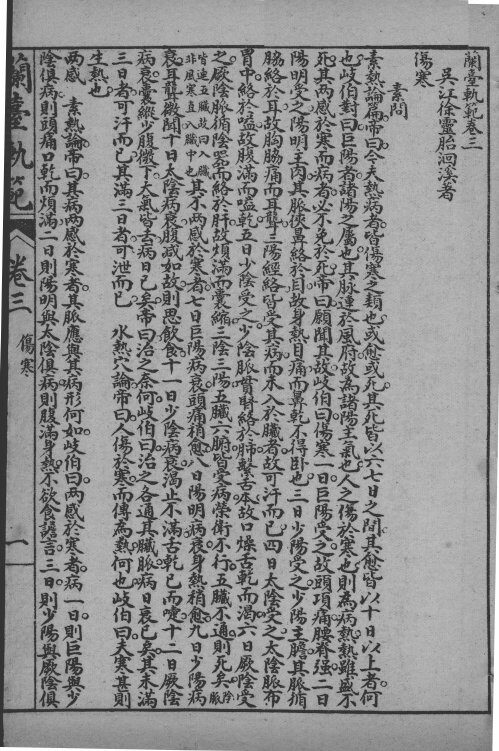 蘭臺軌範卷三
吳江徐靈胎洄溪著
傷寒
素問
素熱論篇帝曰今夫熱病者皆傷寒之類也或愈或死其死皆以六七日之間其愈皆以十日以上者何
也岐伯對曰巨陽者諸陽之屬也其脈連於風府故為諸陽主氣也人之傷於寒也則為病熱熱雖盛不
死其兩感於寒而病者必不免於死帝曰願聞其故岐伯曰傷寒一日巨陽受之故頭項痛腰脊强二日
陽明受之陽明主肉其脈俠鼻絡於目故身熱目痛而鼻乾不得卧也三日少陽受之少陽主膽其脈循
脇絡於耳故胸脇痛而耳聾三陽經絡皆受其病而未入於臟者故可汗而已四日太陰受之太陰脈布
胃中絡於嗌故腹滿而嗌乾五日少陰受之少陰脈貫腎絡於肺繫舌本故口燥舌乾而渴六日厥陰受
之厥陰脈循陰器而絡於肝故煩滿而囊縮三陰三陽五臟六腑皆受病榮衛不行五臟不通則死矣除脈
皆連五臟故曰入臟非風寒直入臟中也其不兩感於寒者七日巨陽病衰頭痛稍愈八日陽明病衰身熱稍愈九日少陽病
衰耳聾微聞十日太陰病衰腹減如故則思飲食十一日少陰病衰渴止不滿舌乾已而嚏十二日厥陰
病衰囊縱少腹微下大氣皆去病日已矣帝曰治之奈何岐伯曰治之各通其臟脈病日衰已矣其未滿
三日者可汗而已其滿三日者可泄而已　水熱穴論帝曰人傷於寒而傳為熱何也岐伯曰夫寒甚則
生熱也
兩感　素熱論帝曰其病兩感於寒者其脈應與其病形何如岐伯曰兩感於寒者病一日則巨陽與少
陰俱病則頭痛口乾而煩滿二日則陽明與太陰俱病則腹滿身熱不欲食譫言三日則少陽與厥陰俱
蘭臺軌範
卷三
傷寒
一